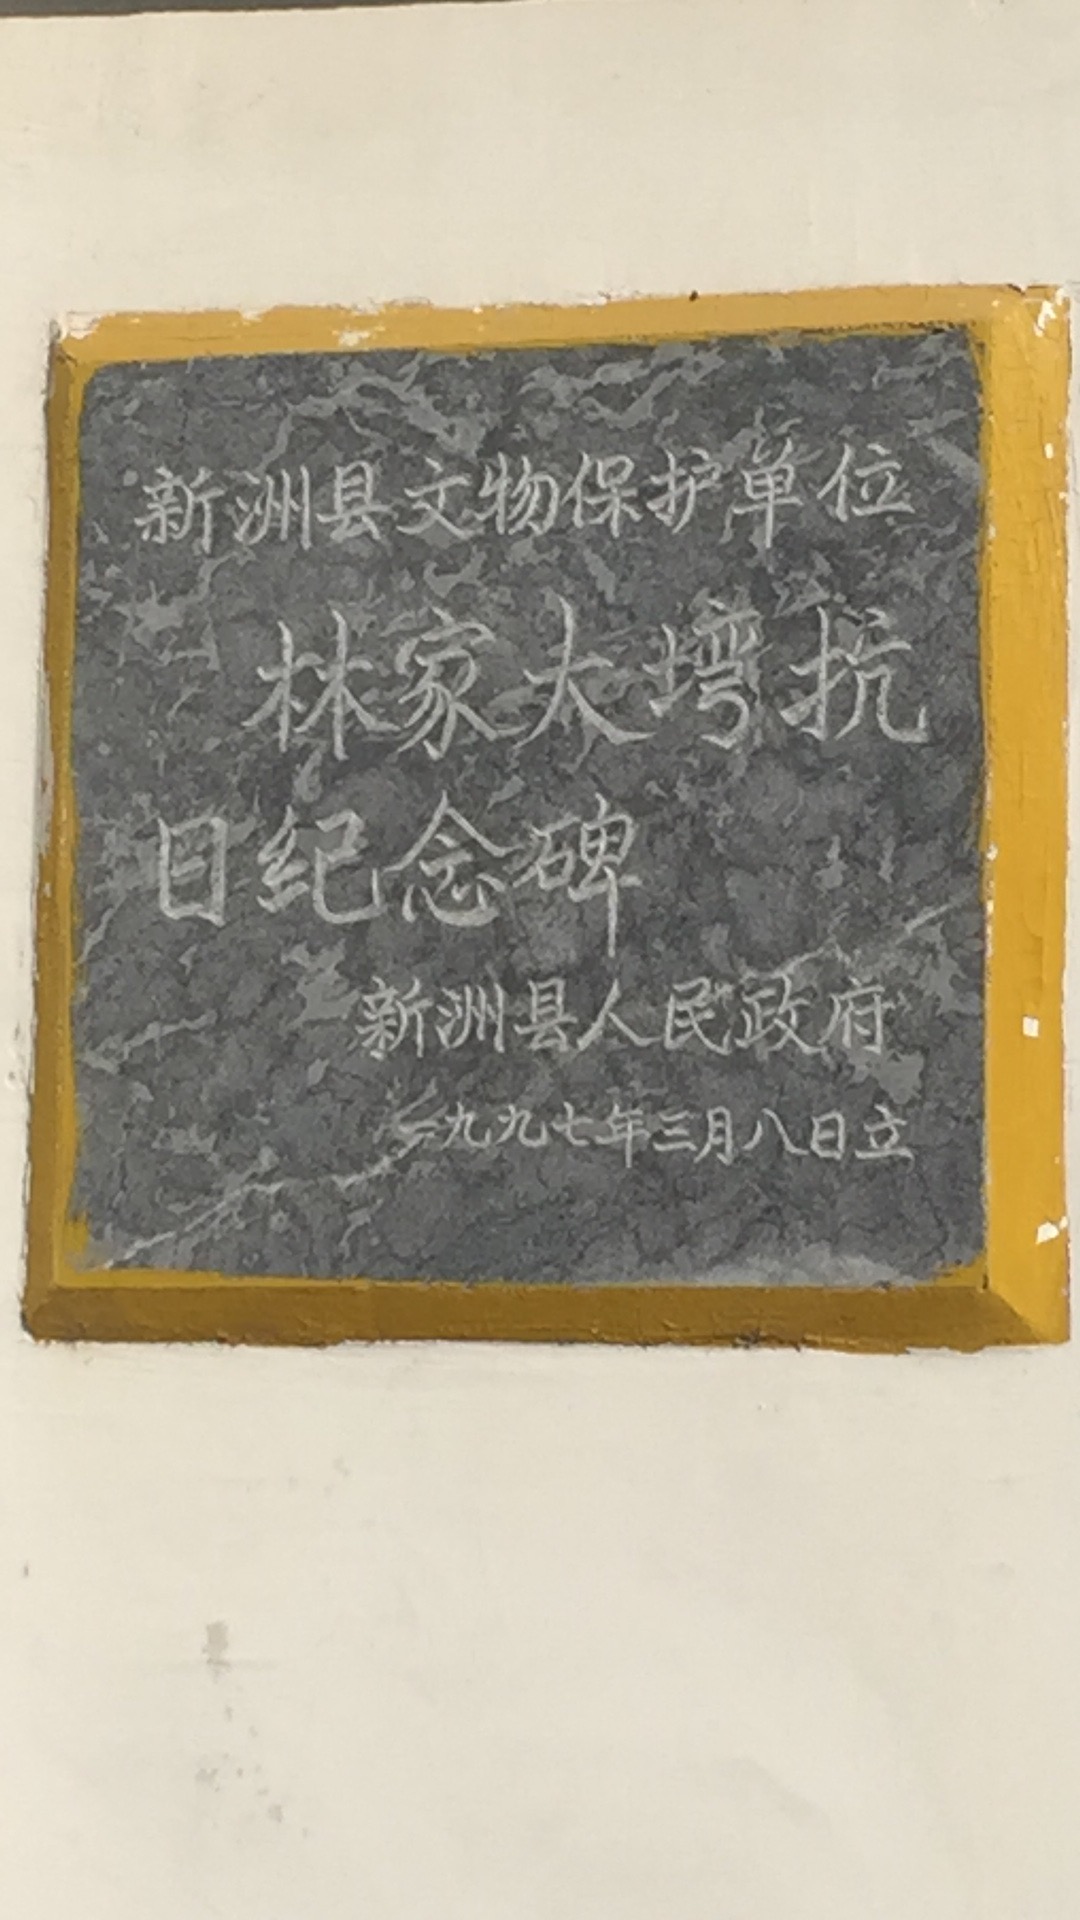 新洲县文物保护单位
林家大塆抗
日纪念碑
新洲县人民政府
一九九七年三月八日立